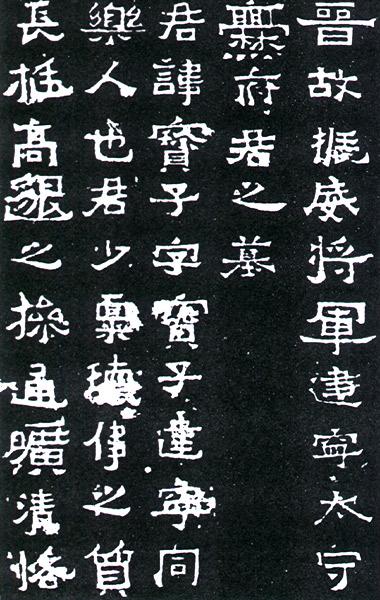 晉故振威將軍建寧太守
爨府君之墓
君諱寶子字寶子建寧同
樂人也君少稟瓌偉之質
長挺高邈之操通曠清恪